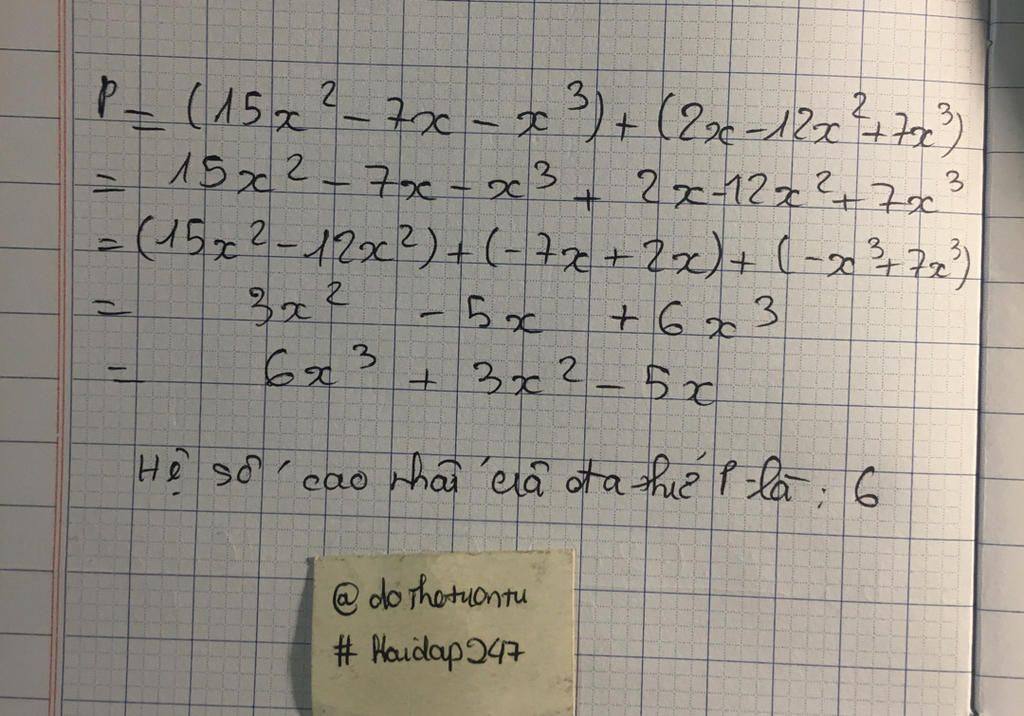 P = (15x² - 7x - x³) + (2x - 12x² + 7x³)
= 15x² - 7x - x³ + 2x - 12x² + 7x³
= (15x² - 12x²) + (-7x + 2x) + (-x³ + 7x³)
= 3x² - 5x + 6x³
= 6x³ + 3x² - 5x
Hệ số cao nhất của đa thức P là : 6
@ dothotuontu
# Hoidap247